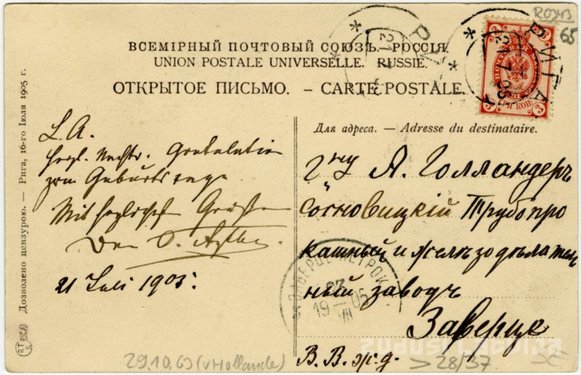 R0343
65
ВСЕМІРНЫЙ ПОЧТОВЫЙ СОЮЗЪ. РОССІЯ.
UNION POSTALE UNIVERSELLE. RUSSIE.
ОТКРЫТОЕ ПИСЬМО. — CARTE POSTALE.
РИГА
Дозволено цензурою. — Рига, 16-го Іюля 1905 г.
Для адреса. — Adresse du destinataire.
L. A.
Gratulation
zum Geburtstage
Mit herzlichen Grüßen
Dein
21 Juli 1905.
А. Голландеръ
Сосновицкій Трубопро
катный и желѣзодѣлатель
ный заводъ
Заверце
В. В. ж. д.
19 05
VII
29.10.63 (v Hollande)
28/37